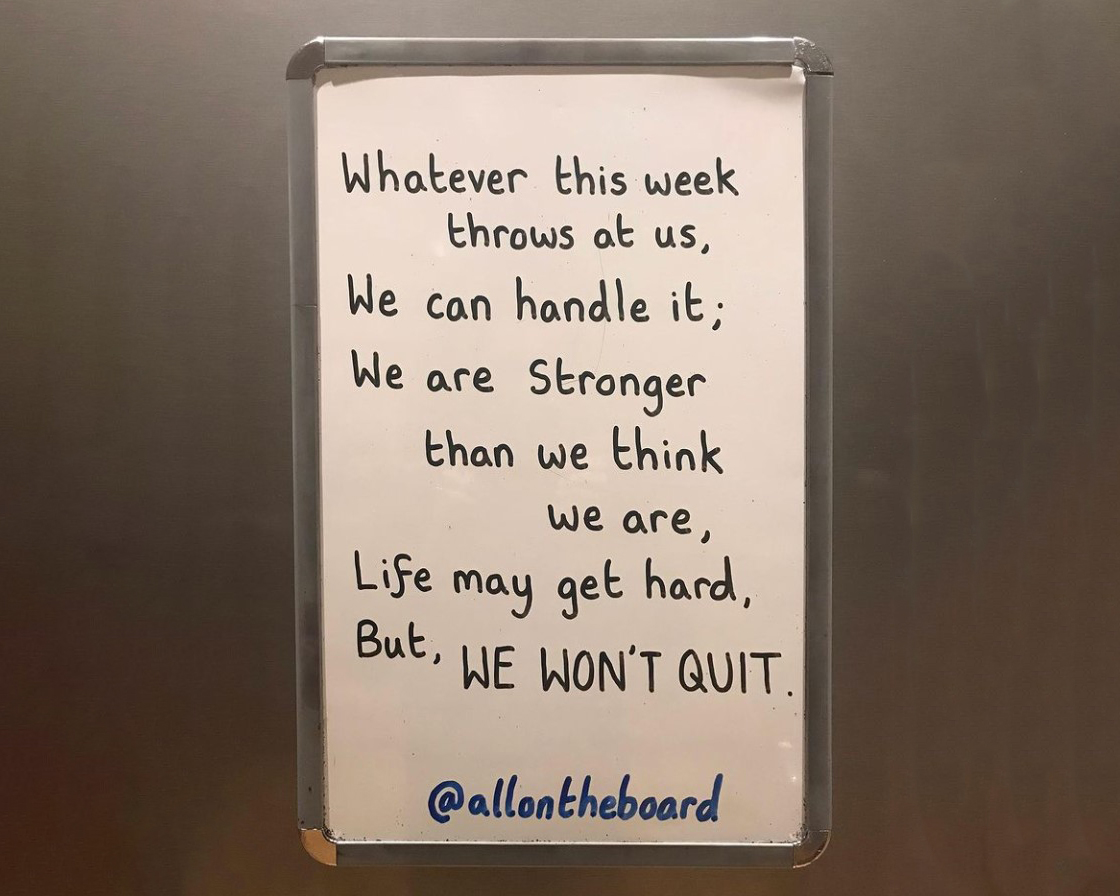 Whatever this week
throws at us,
We can handle it;
We are Stronger
than we think
we are,
Life may get hard,
But, WE WON'T QUIT.
@allontheboard